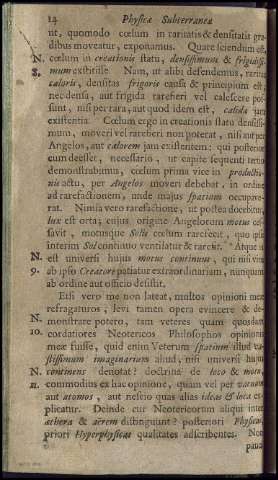 14 Physicæ Subterraneæ
ut, quomodo cœlum in raritatis & densitatis gra-
dibus moveatur, exponamus. Quare sciendum est,
N. cœlum in creationis statu, densissimum & frigidissi-
8. mum extitisse. Nam, ut alibi defendemus, raritas
caloris, densitas frigoris causa & principium est;
nec densa, aut frigida rarefieri vel calescere pos-
sunt, nisi per rara, aut quod idem est, calida jam
existentia. Cœlum ergo in creationis statu densissi-
mum, moveri vel rarefieri non poterat, nisi aut per
Angelos, aut calorem jam existentem: qui posterior
cum deesset, necessario, ut capite sequenti
demonstrabimus, cœlum prima vice in productio-
nis actu, per Angelos moveri debebat, in ordine
ad rarefactionem, unde majus spatium occupave-
rat. Nimia vero rarefactione, ut postea docebitur,
lux est orta; cujus origine Angelorum motus ces-
savit, motusque Solis cœlum rarefecit, quo ipso
interim Sol continuo ventilatur & rarefit. Atque is
N. est universi hujus motus continuus, qui nisi vim
9. ab ipso Creatore patiatur extraordinariam, nunquam
ab ordine aut officio desistit.
Etsi vero me non lateat, multos opinioni meæ
refragaturos, levi tamen opera evincere & de-
N. monstrare potero, tam veteres quam quosdam
10. cordatiores Neotericos Philosophos opinionis
meæ fuisse, quid enim Veterum spatium illud va-
stissimum imaginarium aliud, nisi universi hujus
N. continens denotat? doctrina de loco & motu,
11. commodius ex hac opinione, quam vel per vacuum
aut atomos, aut nescio quas alias ideas & loca ex-
plicatur. Deinde cur Neotericorum aliqui inter
æthera & aërem distinguunt? posteriori Physicas,
priori Hyperphysicas qualitates adscribentes. Non